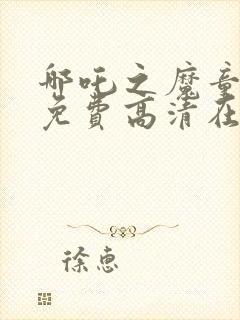 哪吒之魔童
免费高清在
徐惠